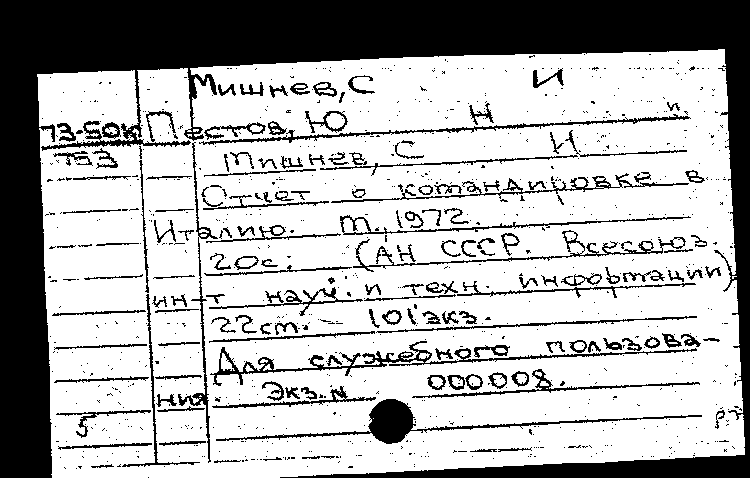 Мишнев, С И
73-50к Пестов, Ю Н и
753 Мишнев, С И
Отчет о командировке в
Италию. М., 1972.
20с. (АН СССР. Всесоюз.
ин-т науч. и техн. информации)
22см. – 101экз.
Для служебного пользова-
ния. Экз. № 000008.
5